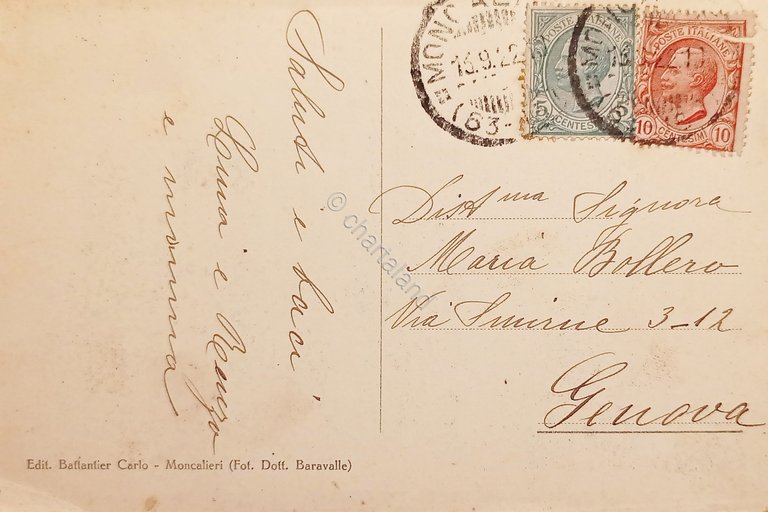 Saluti e baci
e Renzo
e mamma
MONCAL
13.9.22
(63-
POSTE ITALIANE
5 CENTESIMI 5
POSTE ITALIANE
10 CENTESIMI 10
Distma Signora
Maria Bollero
Via Smirne 3-12
Genova
© chartaland
Edit. Battantier Carlo - Moncalieri (Fot. Dott. Baravalle)